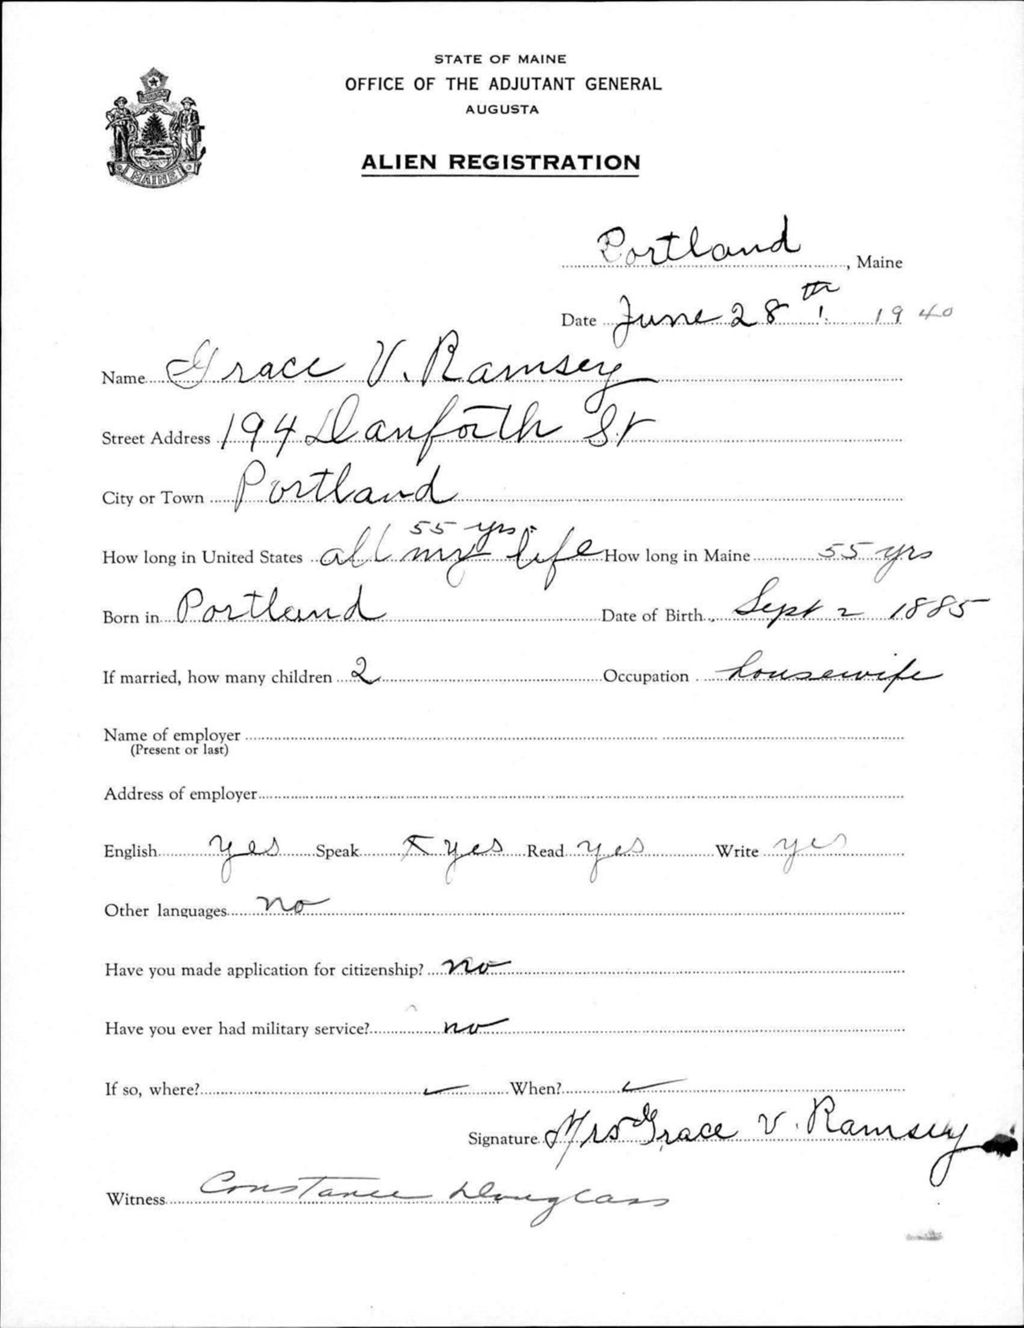 STATE OF MAINE
OFFICE OF THE ADJUTANT GENERAL
AUGUSTA
MAINE
ALIEN REGISTRATION
Portland, Maine
Date June 28th 1940
Name Grace V. Ramsey
Street Address 194 Danforth St
City or Town Portland
55 yrs
How long in United States all my life How long in Maine 55 yrs
Born in Portland Date of Birth Sept 2 1885
If married, how many children 2 Occupation housewife
Name of employer
(Present or last)
Address of employer
English yes Speak yes Read yes Write yes
Other languages no
Have you made application for citizenship? no
Have you ever had military service? no
If so, where? When?
Signature Mrs Grace V. Ramsey
Witness Constance Douglass